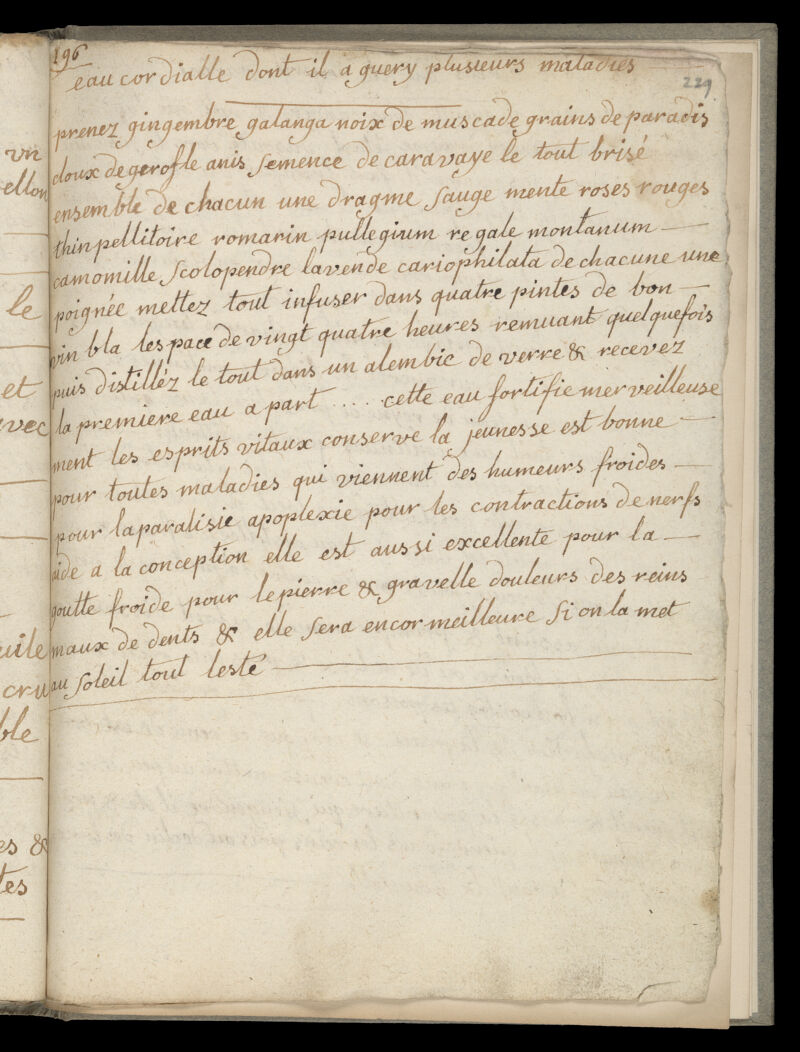 196
eau cordialle dont il a guery plusieurs maladies
229
prenez gingembre galanga noix de muscade grains de paradis
cloux de gerofle anis semence de caravaye le tout brisé
ensemble de chacun une dragme sauge mente roses rouges
thin pellitoire romarin pullegium regale montanum
camomille scolopendre lavende cariophilata de chacune une
poignée mettez tout infuser dans quatre pintes de bon
vin bla lespace de vingt quatre heures remuant quelquefois
puis distilléz le tout dans un alembic de verre & recevez
la premiere eau a part ..... cette eau fortifie merveilleuse
ment les esprits vitaux conserve la jeunesse est bonne
pour toutes maladies qui viennent des humeurs froides
pour laparalisie apoplexie pour les contractions de nerfs
aide a la conception elle est aussi excellente pour la
goutte froide pour le pierre & gravelle douleurs des reins
maux de dents & elle sera encor meilleure si on la met
au soleil tout lesté
vn
ellon
le
et
avec
uile
cru
ble
es &
tes